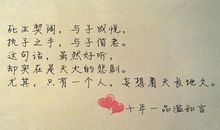 死生契阔，与子成悦，
执子之手，与子偕老。
这句话，虽然好听，
却实在是天大的悲剧。
尤其，只有一个人，妄想着天长地久。
十年一品温如言